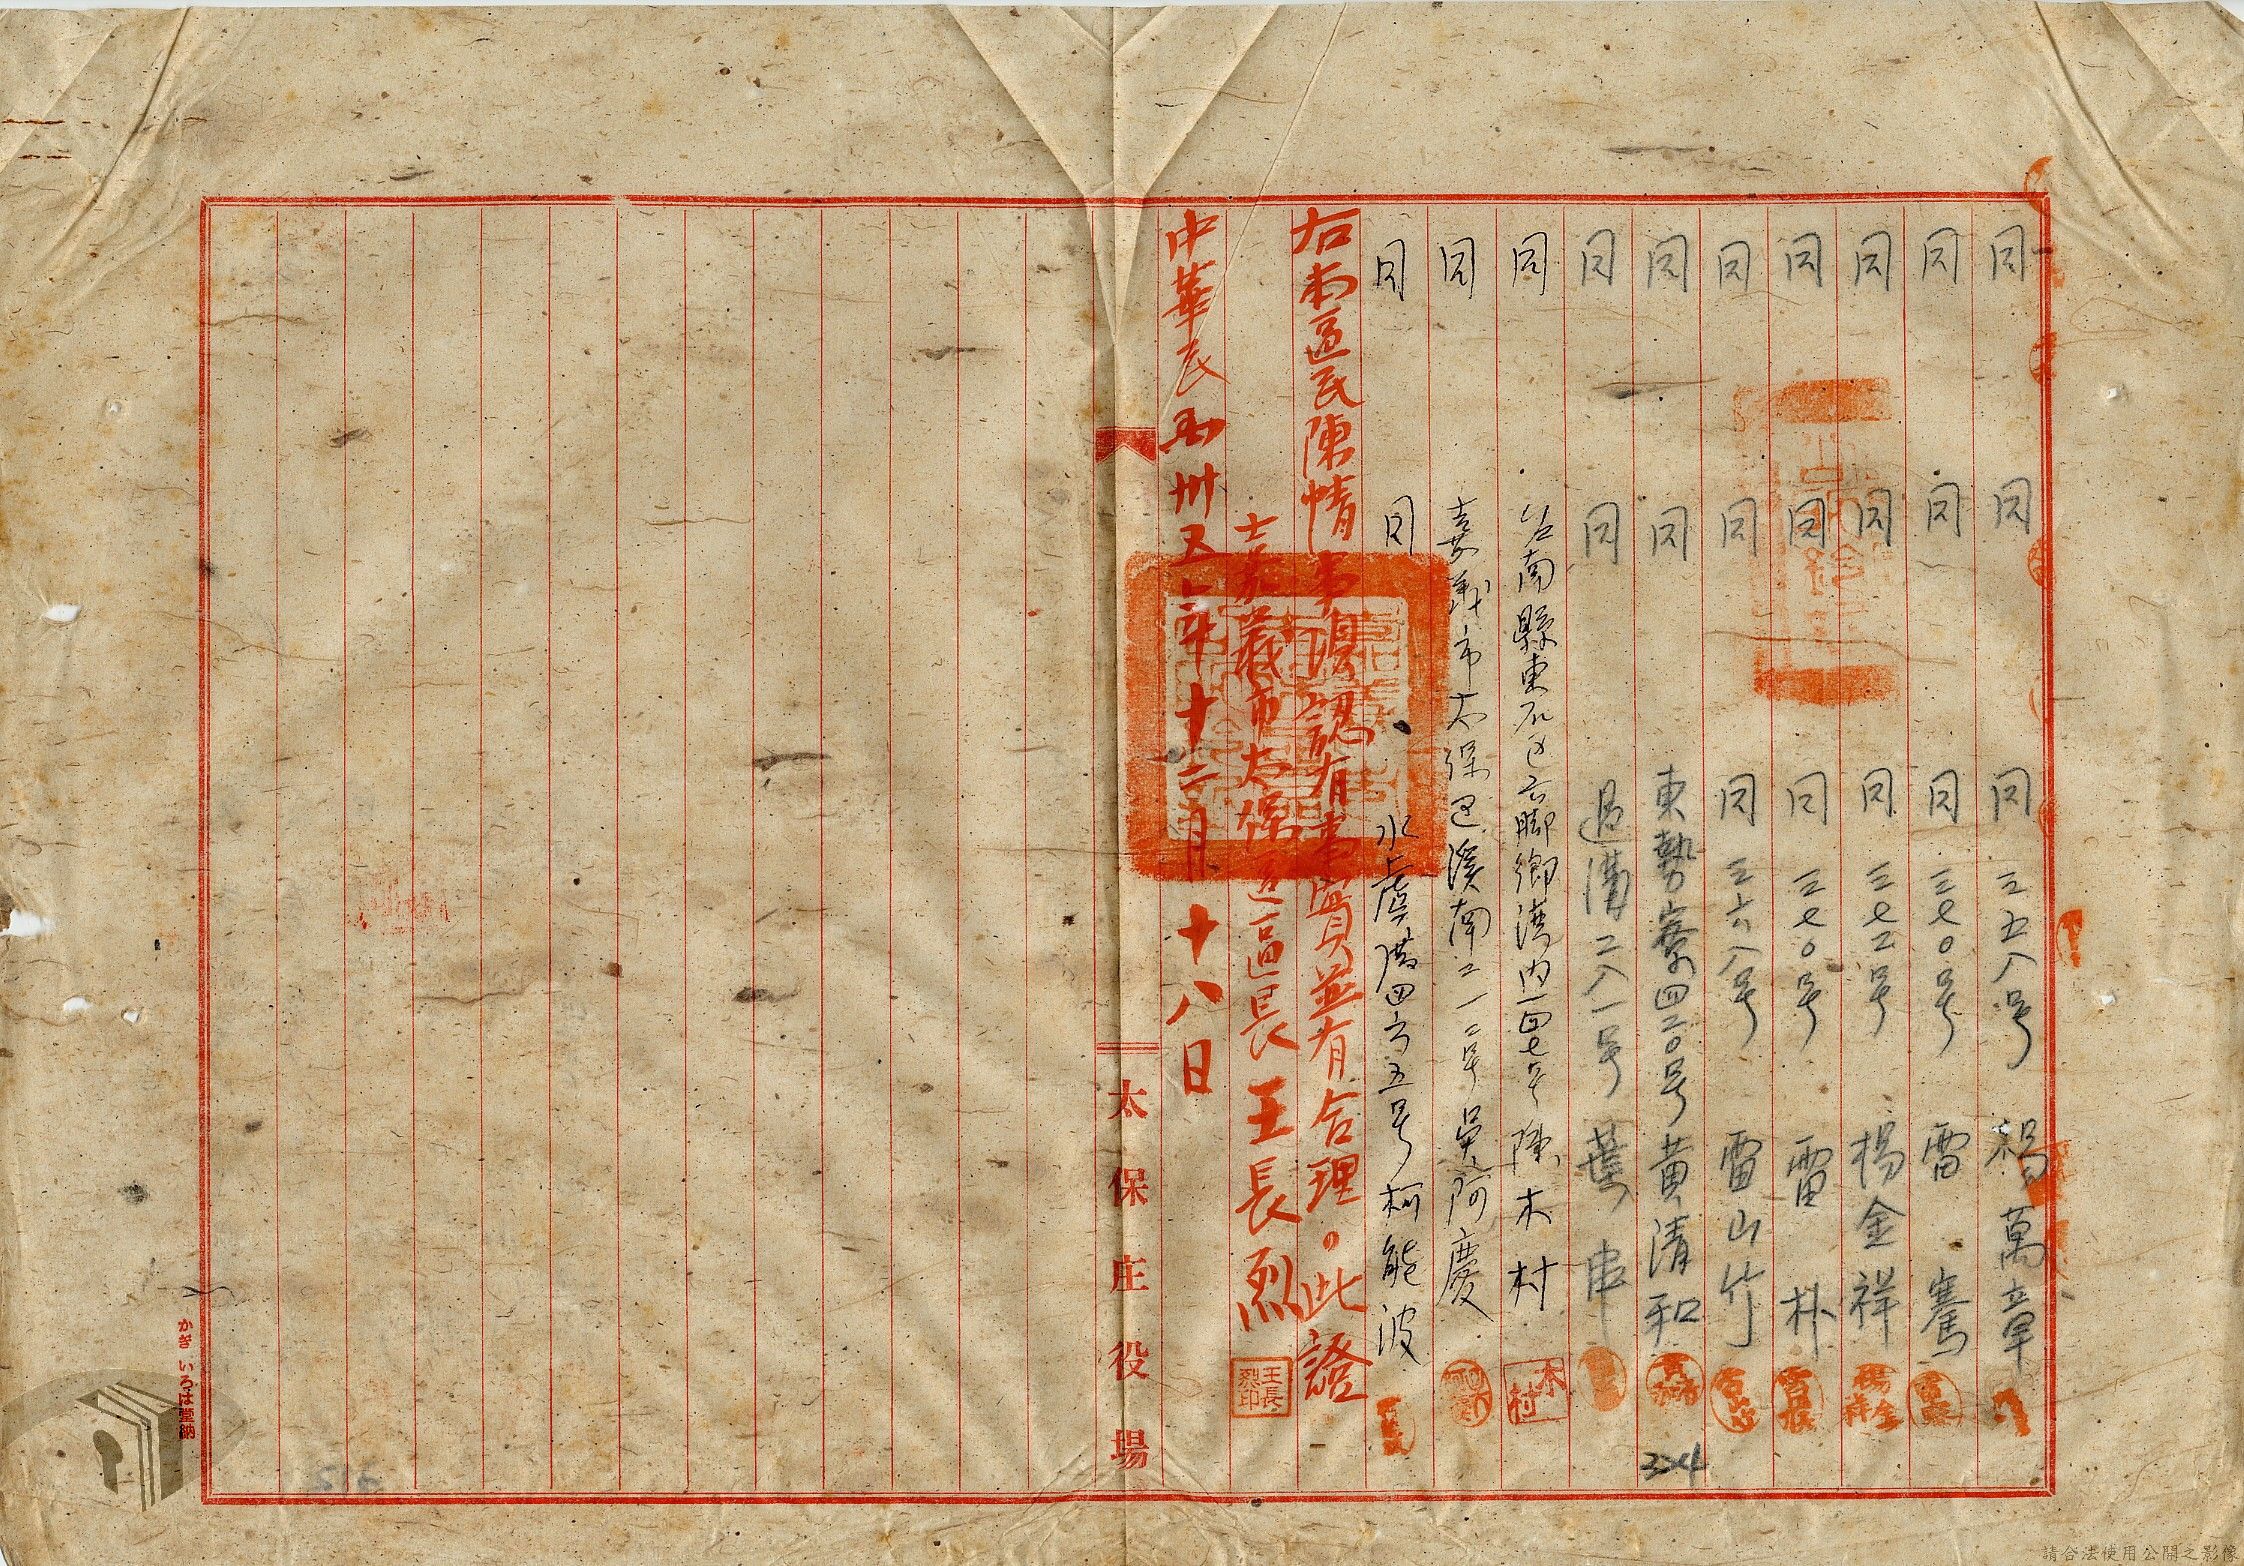 同 同 同 三五八号 楊萬章
同 同 同 三七〇号 雷騫
同 同 同 三七二号 楊金祥
同 同 同 三七〇号 雷朴
同 同 同 三六八号 雷山竹
同 同 東勢寮四二〇号 黄清和
同 同 過溝二八一号 葉串
同 台南縣東石区六脚鄉湾内一四七号 陳木村
木村
同 嘉義市太保区溪南二一二号 吳阿慶
同 同 水虞厝四六五号 柯能波
右本區民陳情事項認有事實並有合理。此證
嘉義市太保區區長 王長烈
王長烈印
中華民国卅五年十二月十八日
太保庄役場
かぎ いろは堂納
請合法使用公開之影像